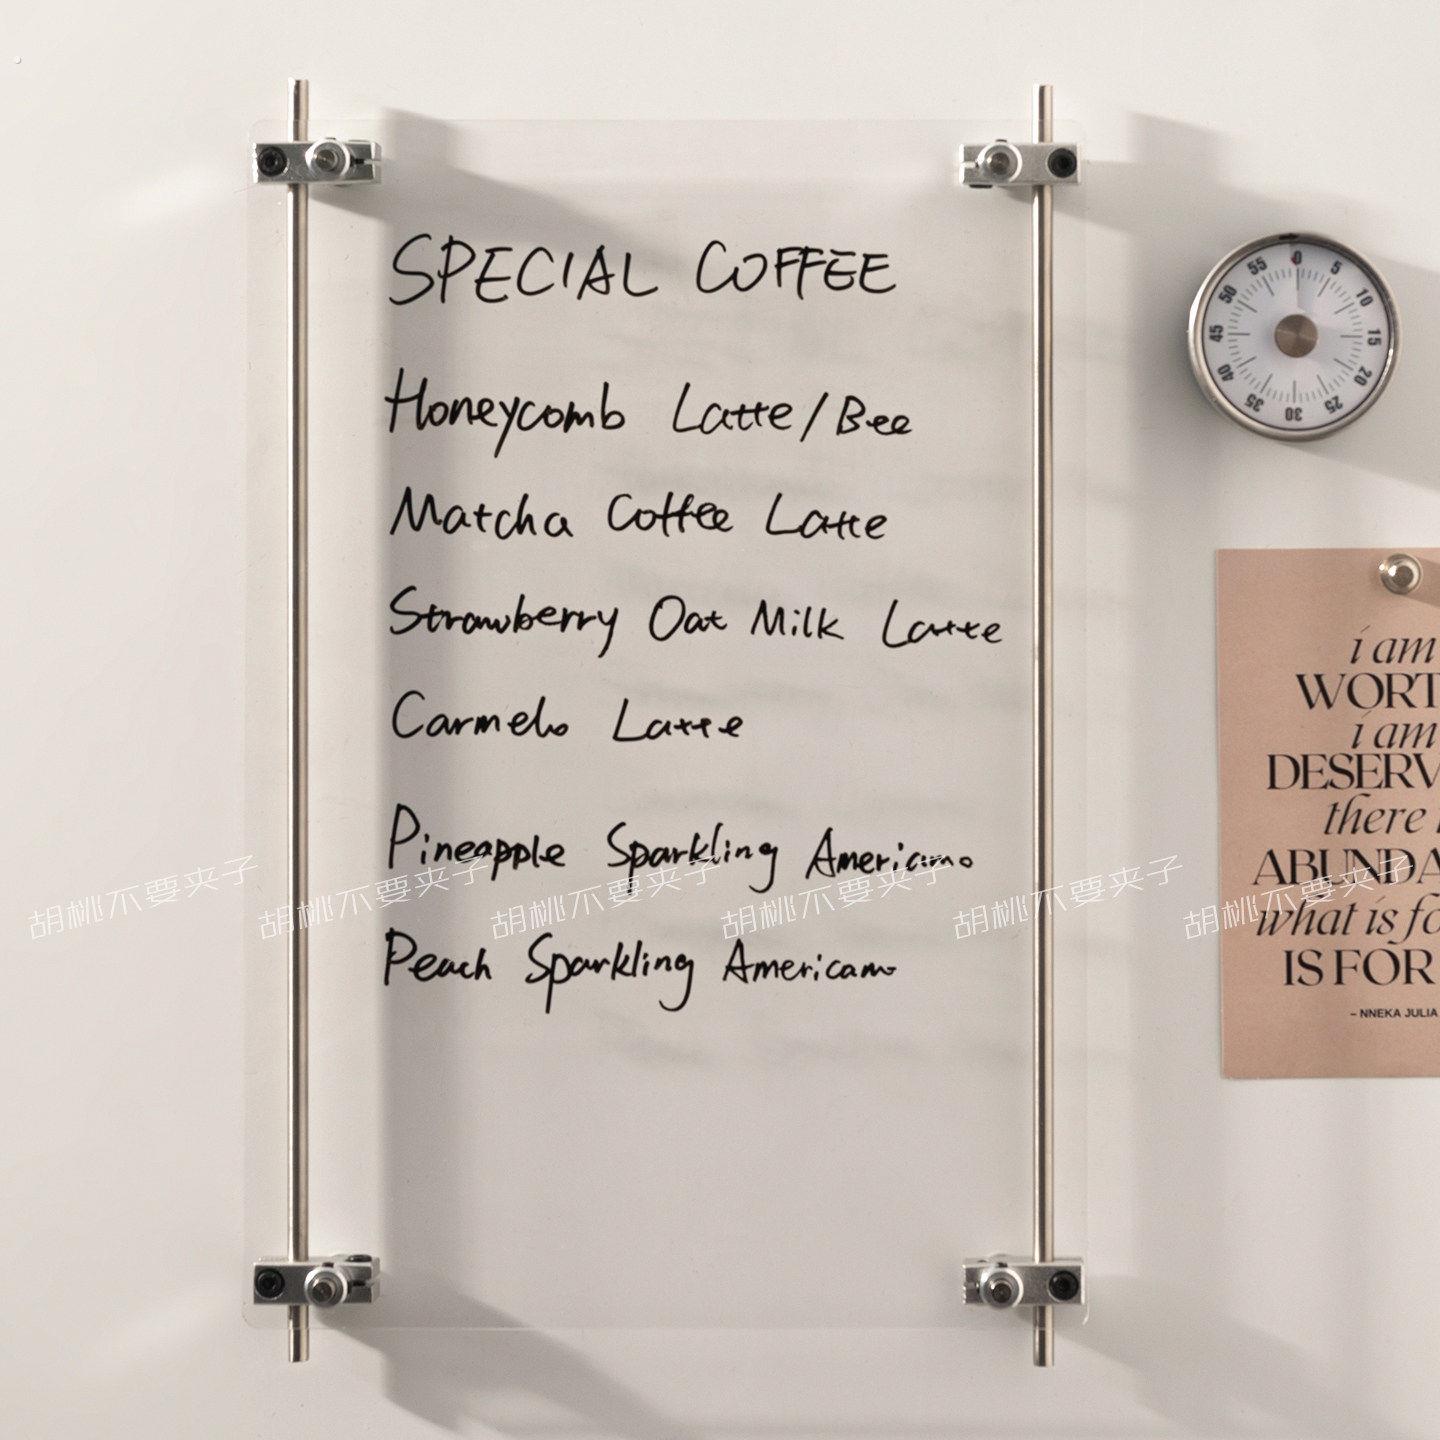 SPECIAL COFFEE
Honeycomb Latte/Bee
Matcha Coffee Latte
Strawberry Oat Milk Latte
Carmelo Latte
Pineapple Sparkling Americano
Peach Sparkling Americano
0 5 10 15 20 25 30 35 40 45 50 55
i am
WORT
i am
DESERV
there i
ABUNDA
what is fo
IS FOR
– NNEKA JULIA
胡桃不要夹子 胡桃不要夹子 胡桃不要夹子 胡桃不要夹子 胡桃不要夹子 胡桃不要夹子